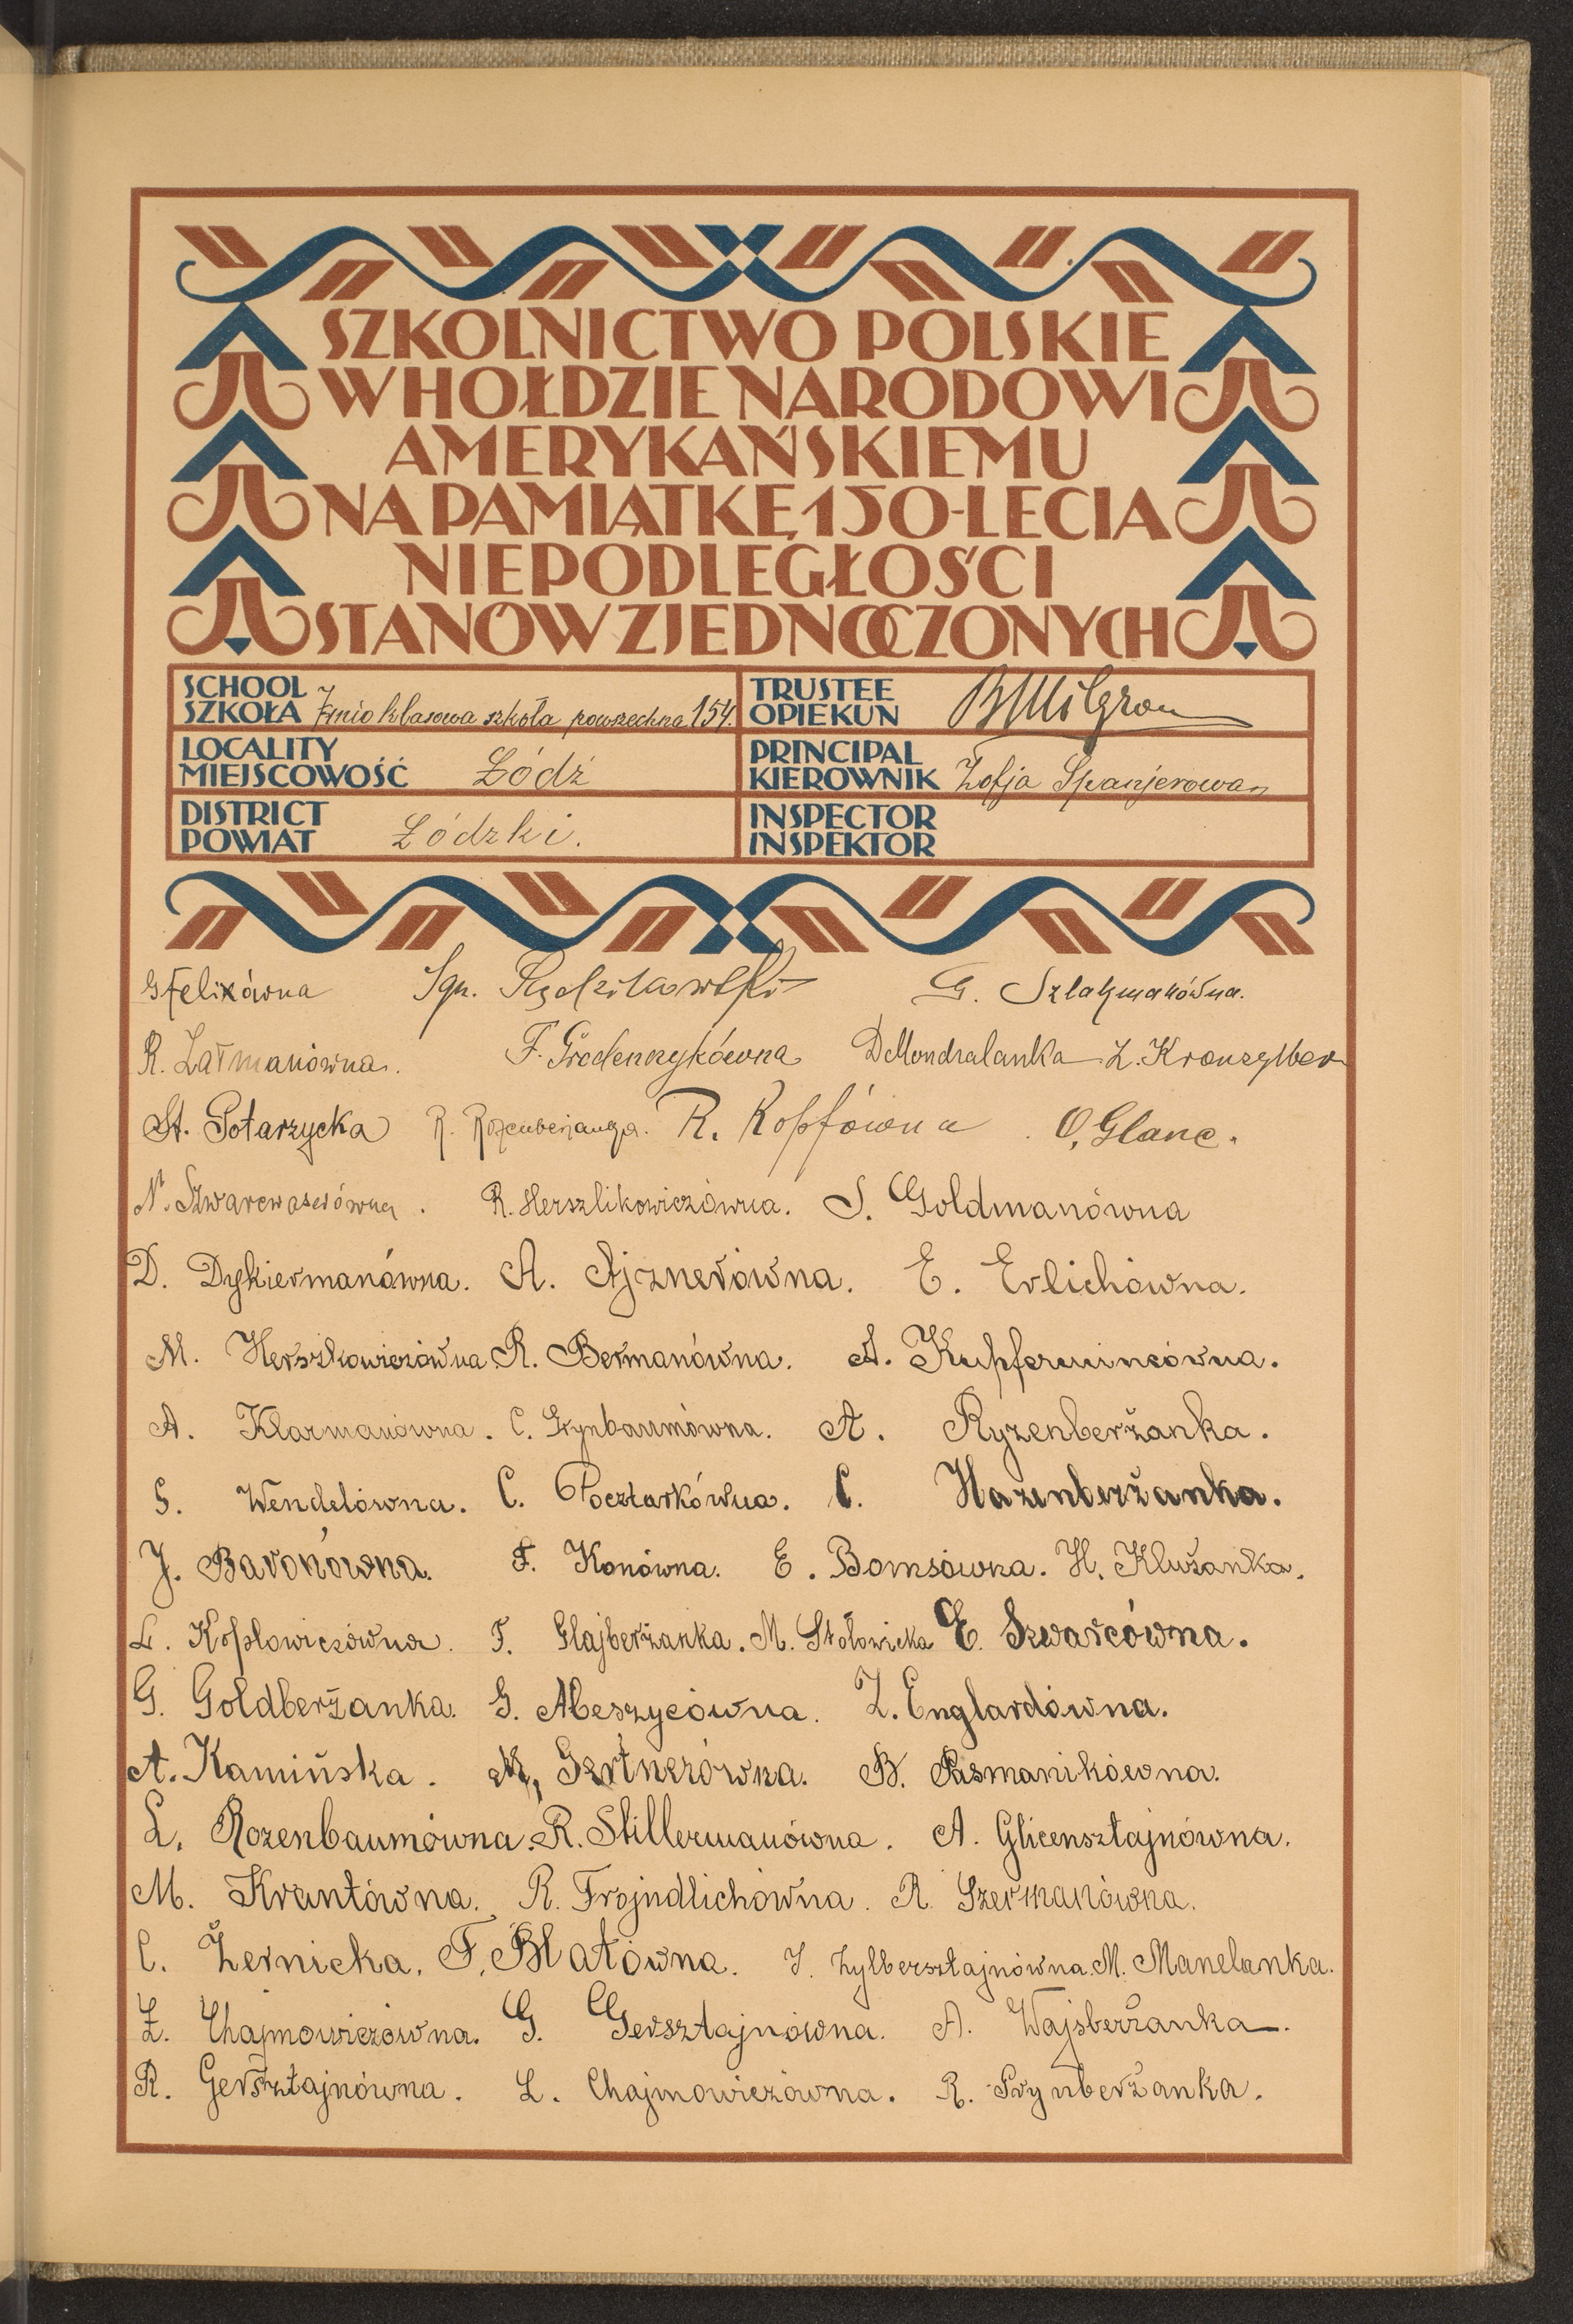 SZKOLNICTWO POLSKIE
W HOŁDZIE NARODOWI
AMERYKAŃSKIEMU
NA PAMIĄTKĘ 150-LECIA
NIEPODLEGŁOŚCI
STANÓW ZJEDNOCZONYCH
SCHOOL
SZKOŁA 7mio klasowa szkoła powszechna 154.
TRUSTEE
OPIEKUN BMilgrom
LOCALITY
MIEJSCOWOŚĆ Łódź
PRINCIPAL
KIEROWNIK Zofja Spanjerowa
DISTRICT
POWIAT Łódzki.
INSPECTOR
INSPEKTOR
G Felixówna Ign. G. Szlakmanówna.
R. Łatmanówna. F. Grodenczykówna D Mondralanka Z. Kronzylber
St. Potarzycka R. R. Kopfówna O. Glanc.
N. Szwarcwaserówna. R. Herszlikowiczówna. S. Goldmanówna
D. Dykiermanówna. A. Ajznerówna. E. Erlichówna.
M. Herszkowiczówna R. Bermanówna. A. Kupfermincówna.
A. Klarmanówna. C. Grynbaumówna. A. Ryzenberżanka.
S. Wendelówna. C. Pocztarkówna. C. Hazenberżanka.
J. Baronówna. F. Konówna. E. Bomsówna. H. Klużanka.
L. Koplowiczówna. F. Glajberżanka. M. Stołowicka E. Szwarcówna.
G. Goldberżanka. G. Abeszycówna. Z. Englardówna.
A. Kamińska. M. Gertnerówna. B. Pasmanikówna.
L. Rozenbaumówna. R. Stillermanówna. A. Glicensztajnówna.
M. Krantówna. R. Frojndlichówna. R. Szermanówna.
C. Żernicka. F. Blatówna. J. Zylbersztajnówna. M. Manelanka.
Z. Chajmowiczówna. G. Gersztajnówna. A. Wajsberżanka.
R. Gersztajnówna. L. Chajmowiczówna. R. Grynberżanka.